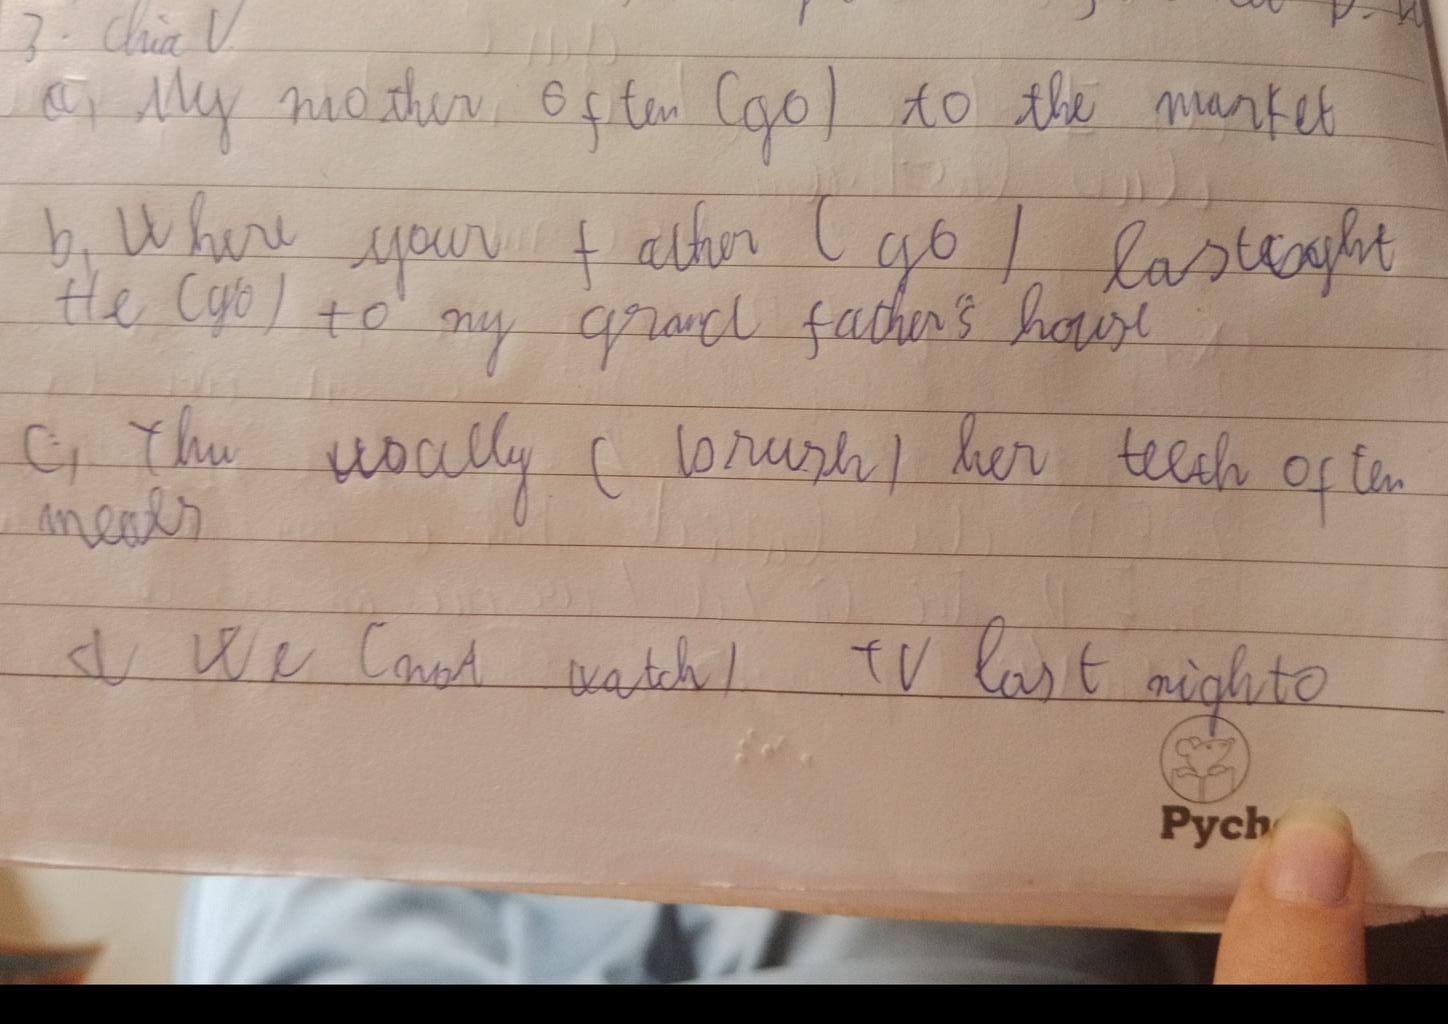 3. Chia V
a, My mother often (go) to the market
b, Where your father (go) last
He (go) to my grand father's house
c, Thu usally (brush) her teeth often
meals
d We (not watch) TV last nighto
Pych